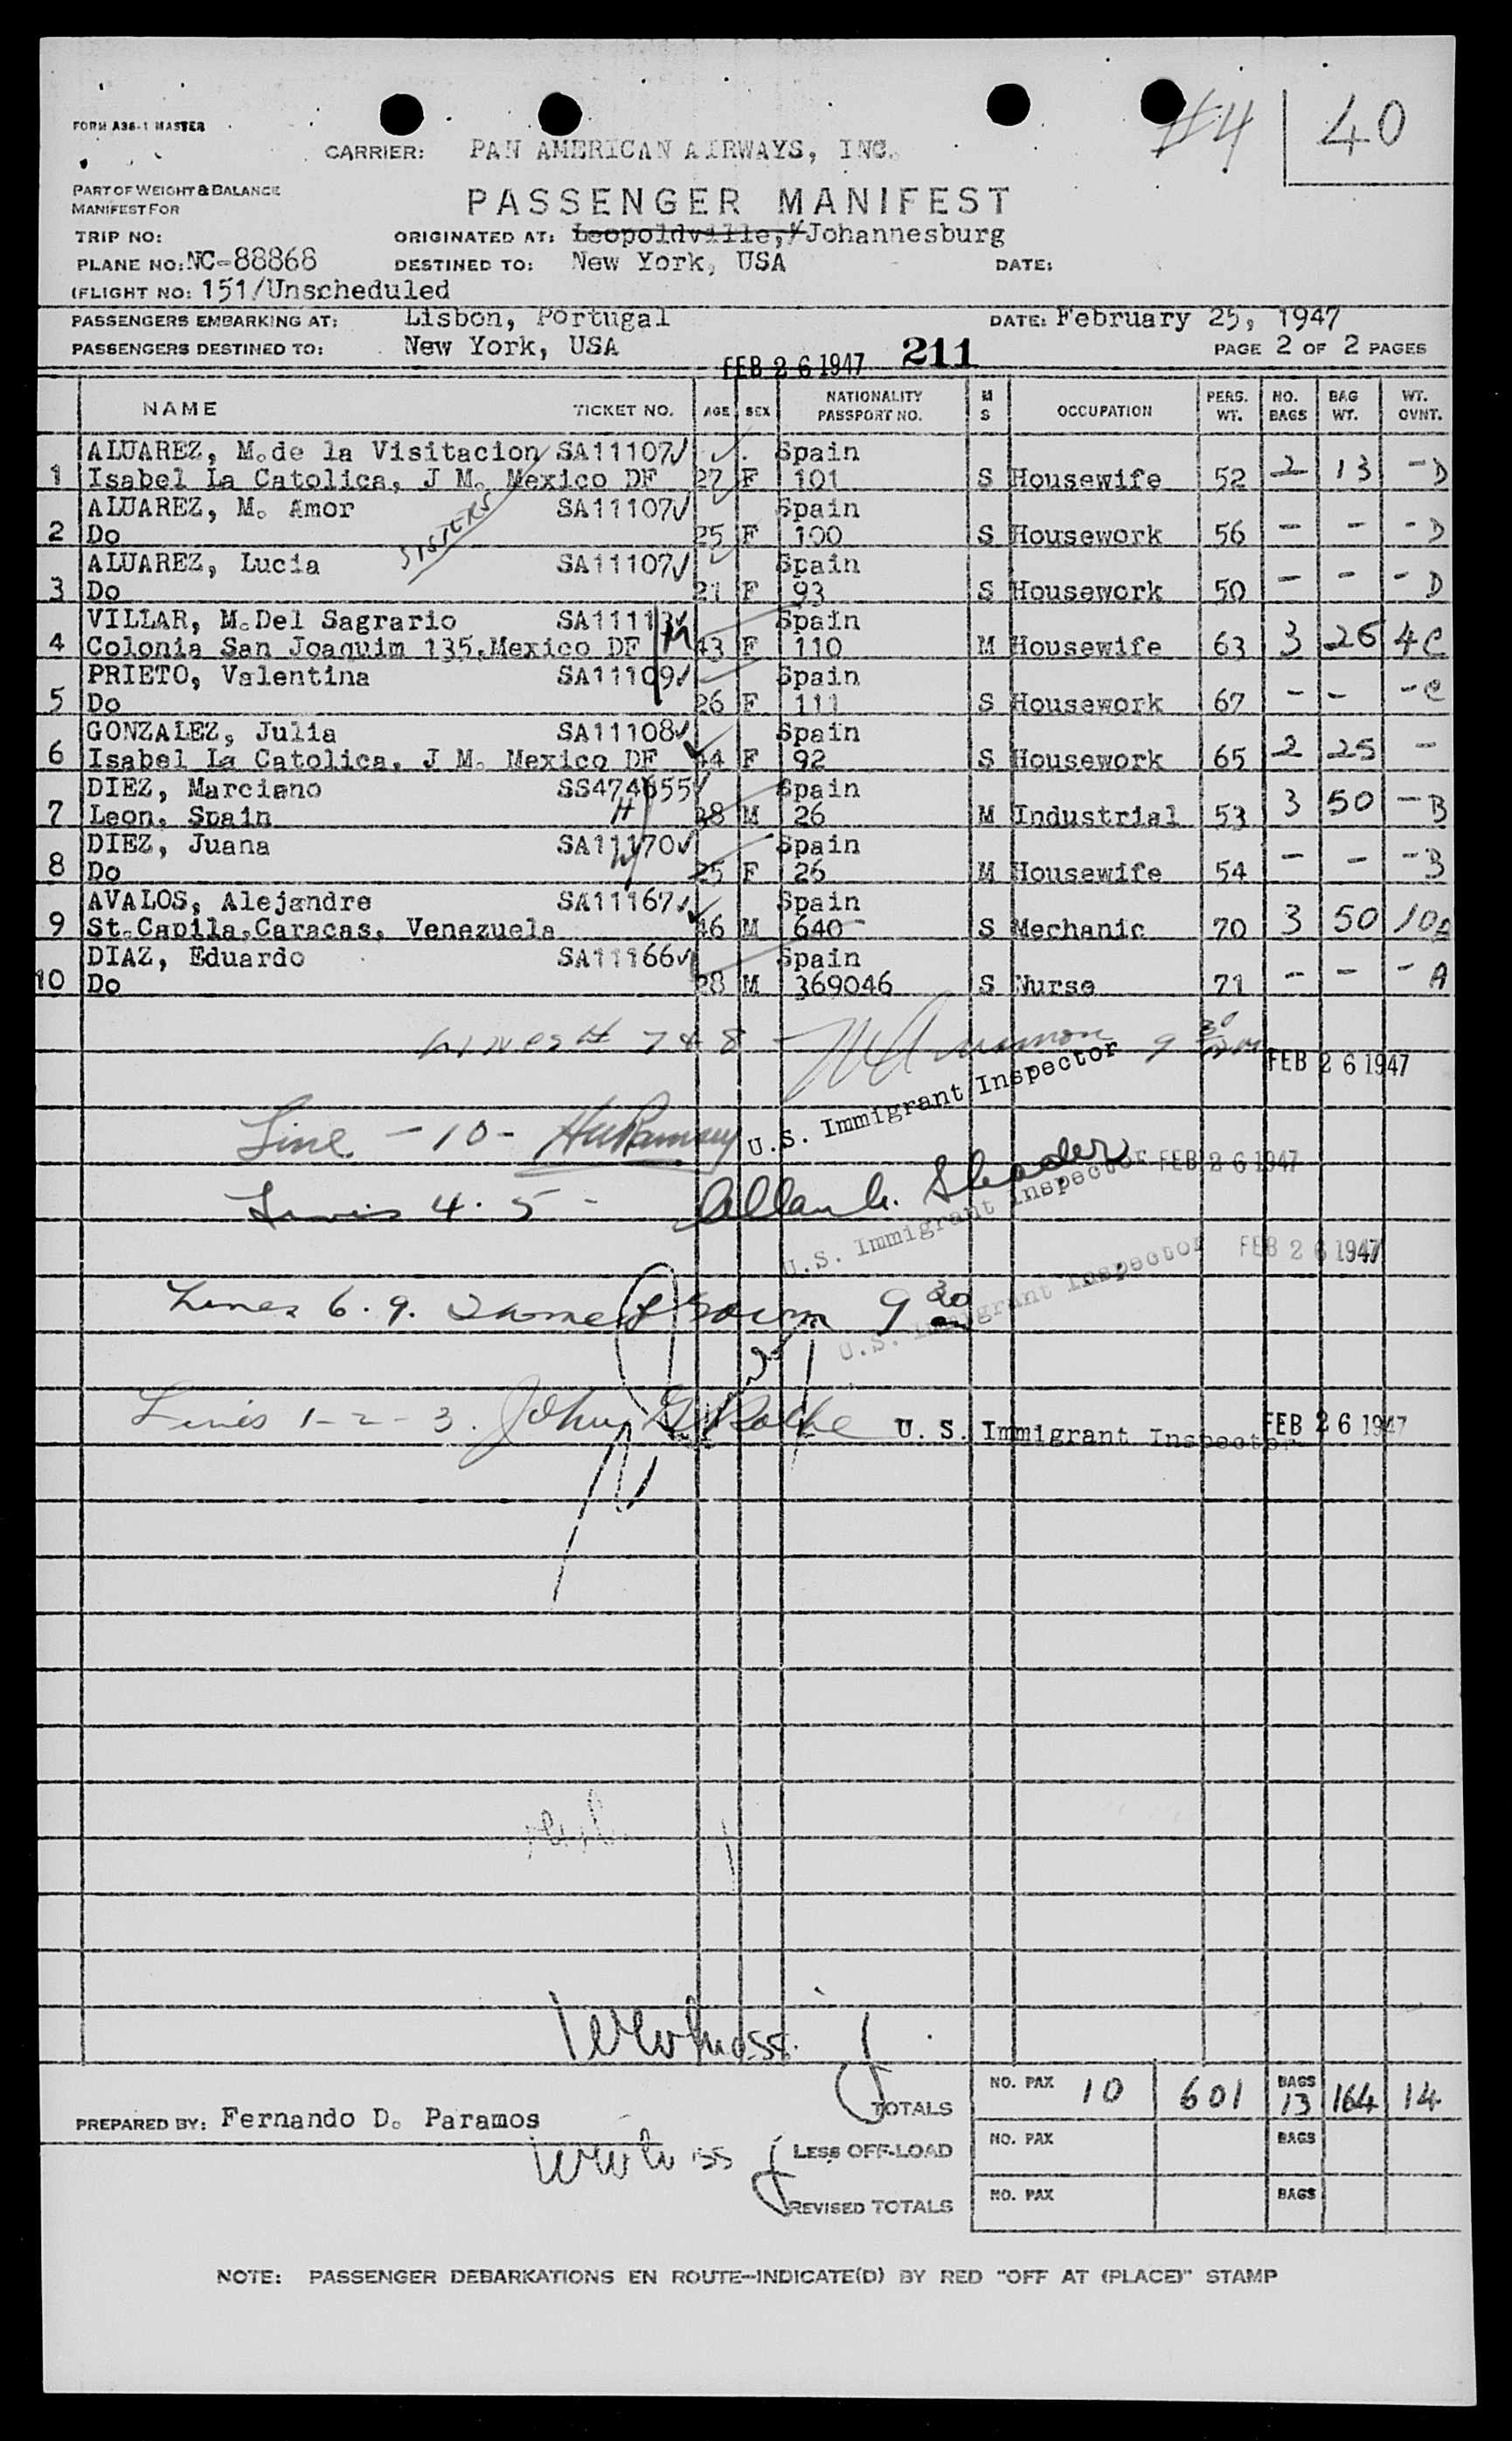 #4 40
FORM A36-1 MASTER
CARRIER: PAN AMERICAN AIRWAYS, INC.
PART OF WEIGHT & BALANCE
MANIFEST FOR
PASSENGER MANIFEST
TRIP NO: ORIGINATED AT: Leopoldville, Johannesburg
PLANE NO: NC-88868 DESTINED TO: New York, USA DATE:
(FLIGHT NO: 151/Unscheduled
PASSENGERS EMBARKING AT: Lisbon, Portugal DATE: February 25, 1947
PASSENGERS DESTINED TO: New York, USA FEB 26 1947 211 PAGE 2 OF 2 PAGES
NAME TICKET NO. AGE SEX NATIONALITY PASSPORT NO. M S OCCUPATION PERS. WT. NO. BAGS BAG WT. WT. OVNT.
ALUAREZ, M.de la Visitacion SA11107 Spain
1 Isabel La Catolica, J M. Mexico DF 27 F 101 S Housewife 52 2 13 - D
ALUAREZ, M. Amor SISTERS SA11107 Spain
2 Do 25 F 100 S Housework 56 - - - D
ALUAREZ, Lucia SA11107 Spain
3 Do 21 F 93 S Housework 50 - - - D
VILLAR, M.Del Sagrario SA11113 Spain
4 Colonia San Joaquim 135,Mexico DF 43 F 110 M Housewife 63 3 26 4 C
PRIETO, Valentina SA11109 Spain
5 Do 26 F 111 S Housework 67 - - - C
GONZALEZ, Julia SA11108 Spain
6 Isabel La Catolica, J M. Mexico DF 44 F 92 S Housework 65 2 25 -
DIEZ, Marciano SS474655 Spain
7 Leon, Spain H 38 M 26 M Industrial 53 3 50 - B
DIEZ, Juana SA11170 Spain
8 Do 25 F 26 M Housewife 54 - - - B
AVALOS, Alejandre SA11167 Spain
9 St.Capila,Caracas, Venezuela 46 M 640 S Mechanic 70 3 50 10 A
DIAZ, Eduardo SA11166 Spain
10 Do 28 M 369046 S Nurse 71 - - - A
Lines 7 & 8 - 9 30 FEB 26 1947
U.S. Immigrant Inspector
Line - 10 - HWRamsey FEB 26 1947
Lines 4. 5 - Allan G. Shader
U.S. Immigrant Inspector FEB 26 1947
Lines 6. 9. 9 30
U.S. Immigrant Inspector
Lines 1-2-3. John G Rothe U. S. Immigrant Inspector FEB 26 1947
TOTALS NO. PAX 10 601 BAGS 13 164 14
PREPARED BY: Fernando D. Paramos
LESS OFF-LOAD NO. PAX BAGS
REVISED TOTALS NO. PAX BAGS
NOTE: PASSENGER DEBARKATIONS EN ROUTE—INDICATE(D) BY RED "OFF AT (PLACE)" STAMP